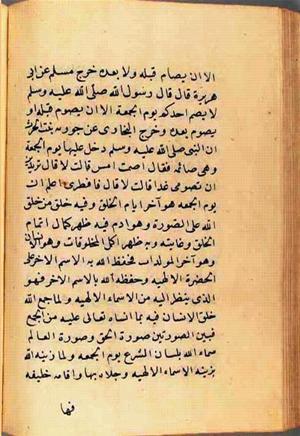 الا ان يصام قبله ولا بعده خرج مسلم عن ابى
هريرة قال قال رسول الله صلى الله عليه وسلم
لا يصم احدكم يوم الجمعة الا ان يصوم قبله او
يصوم بعده وخرج البخارى عن جويرية بنت الحرث
ان النبى صلى الله عليه وسلم دخل عليها يوم الجمعة
وهى صائمة فقال اصمت امس قالت لا قال تريدين
ان تصومى غدا قالت لا قال فافطرى اعلم ان
يوم الجمعه هو آخر ايام الخلق وفيه خلق من خلق
الله على الصورة وهو ادم فيه ظهر كمال اتمام
الخلق وغايته وبه ظهر اكمل المخلوقات وهو الانسان
وهو آخر المولدات فحفظ الله به الاسم الاخر على
الحضرة الالهية وحفظه الله بالاسم الاخر فهو
الذى ينظر اليه من الاسماء الالهية ولما جمع الله
خلق الانسان فيه بما انشاه تعالى عليه من الجمع
بين الصورتين صورة الحق وصورة العالم
سماه الله بلسان الشرع يوم الجمعه ولما زينه الله
بزينة الاسماء الالهيه وجلاه بها واقامه خليفه
فيها